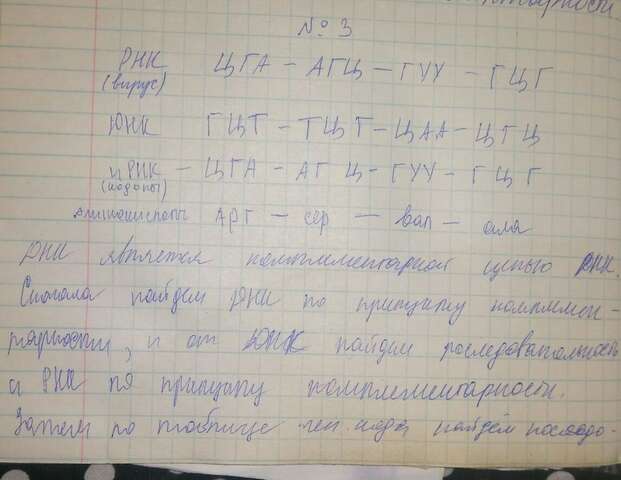 № 3
РНК ЦГА – АГЦ – ГУУ – ГЦГ
(вирус)
ДНК ГЦТ – ТЦГ – ЦАА – ЦГЦ
иРНК – ЦГА – АГЦ – ГУУ – ГЦГ
(кодоны)
Аминокислоты Арг – сер – вал – ала
ДНК является комплементарной цепью РНК.
Сначала найдем ДНК по принципу комплемен-
тарности, и от ДНК найдем последовательность
и РНК по принципу комплементарности.
Затем по таблице ген. кода найдём последо-